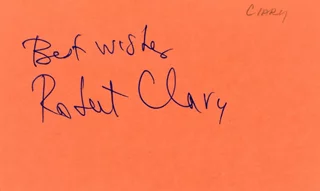 Clary
Best wishes
Robert Clary